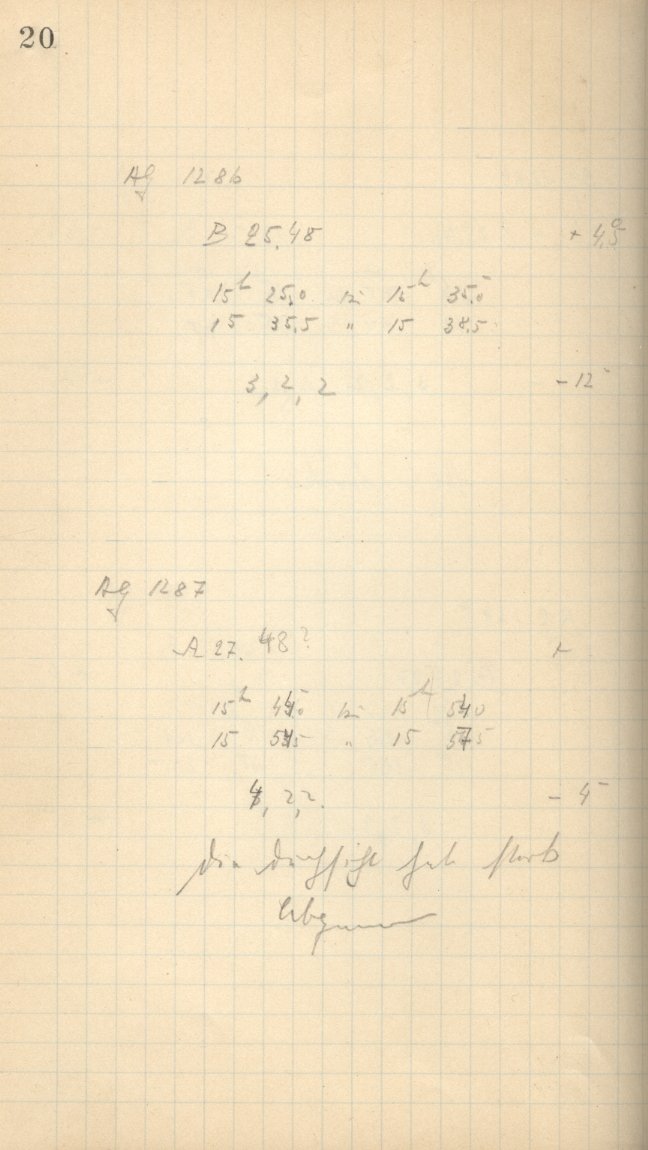 20
AG 1286
B 25.48 + 4,5°
15h 25,0 bis 15h 35,0
15 35,5 " 15 38,5
3, 2, 2 - 12
AG 1287
A 27. 48? +
15h 44,0 bis 15h 54,0
15 54,5 " 15 57,5
4, 2, 2. - 4
Die Durchsicht hat stark
abgenommen